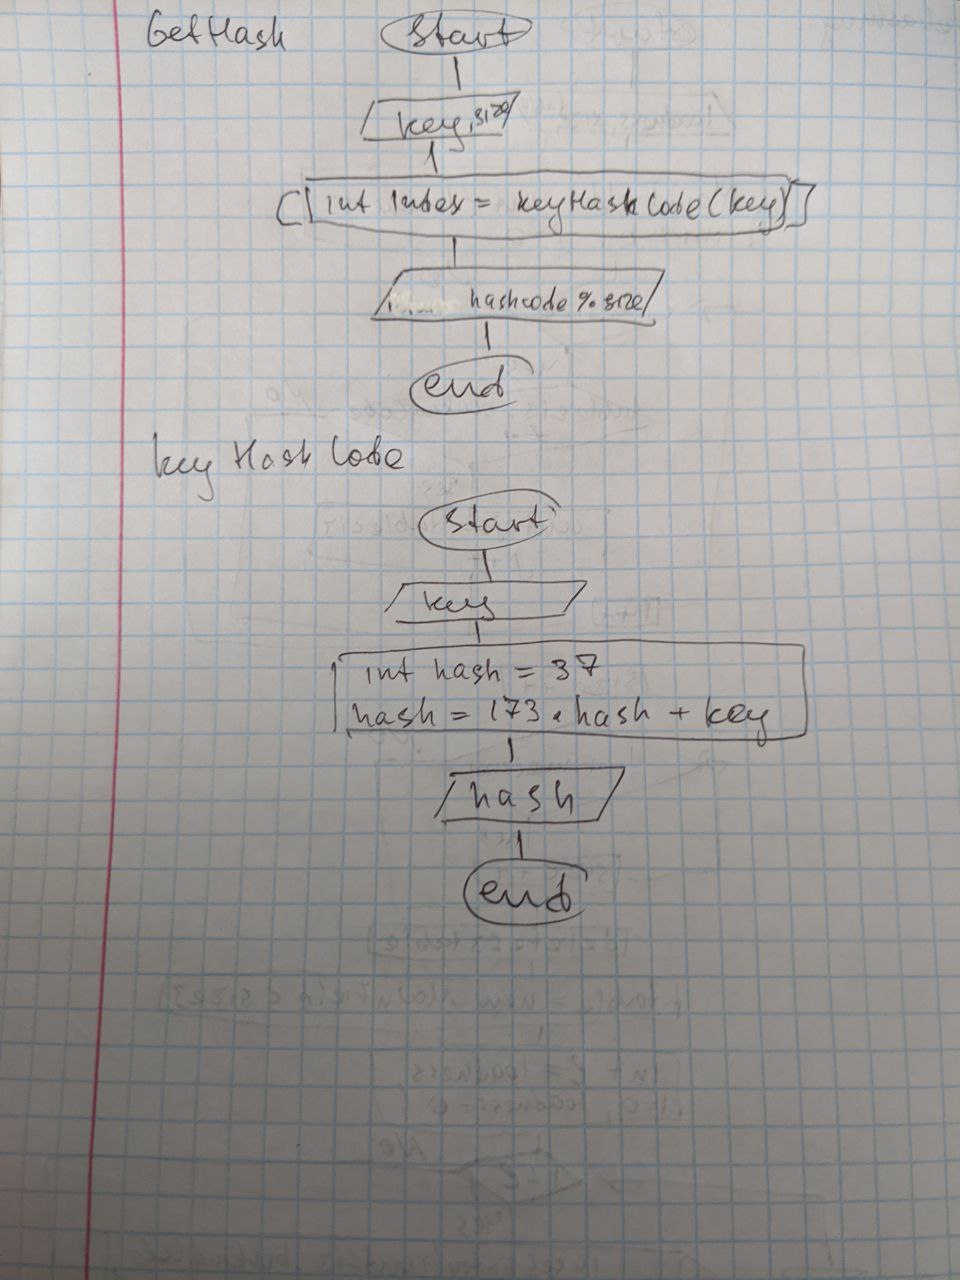 GetHash
Start
key, size
int index = keyHashCode(key)
hashcode % size
end
key Hash Code
Start
key
int hash = 37
hash = 173 * hash + key
hash
end